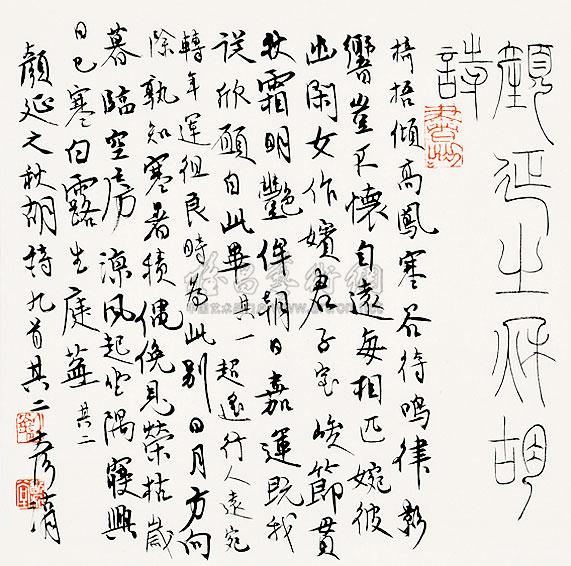 顏延之秋胡
詩
椅梧傾高鳳寒谷待鳴律影
響豈不懷自遠每相匹婉彼
幽閑女作嬪君子室峻節貫
秋霜明艷侔朝日嘉運既我
從欣願自此畢其一超遙行人遠宛
轉年運徂良時為此別日月方向
除孰知寒暑積僶俛見榮枯歲
暮臨空房涼風起坐隅寢興
日已寒白露生庭蕪其二
顏延之秋胡詩九首其二